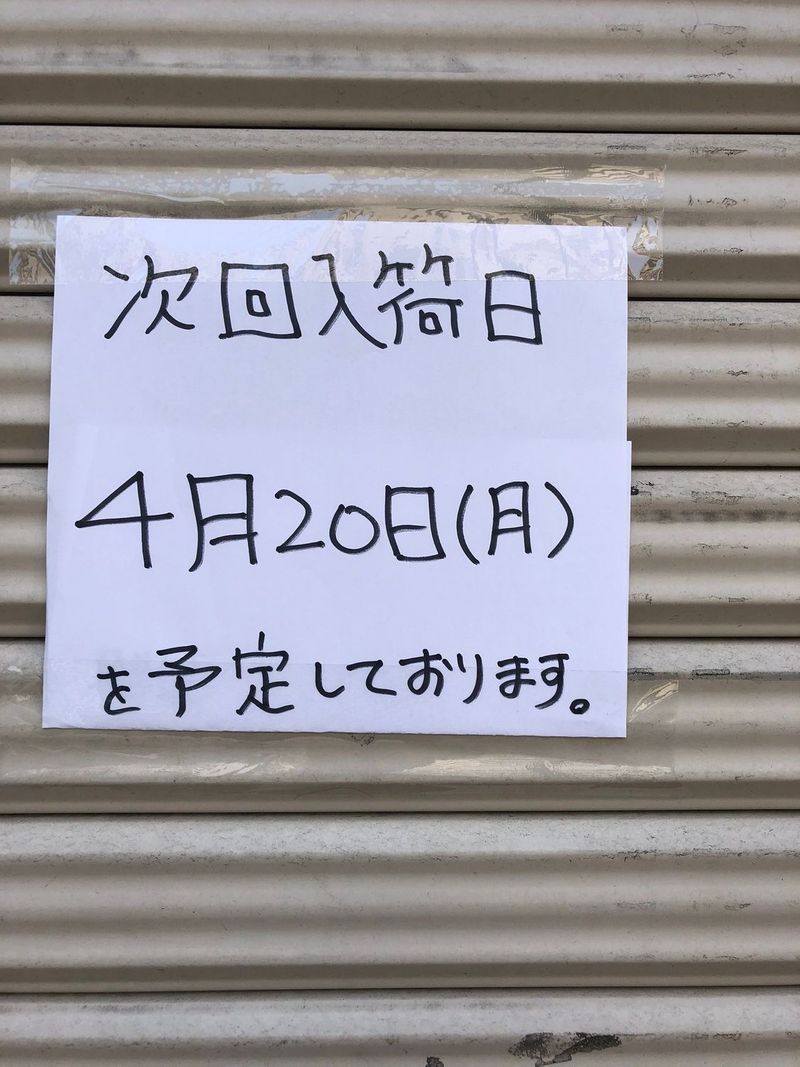 次回入荷日
4月20日(月)
を予定しております。